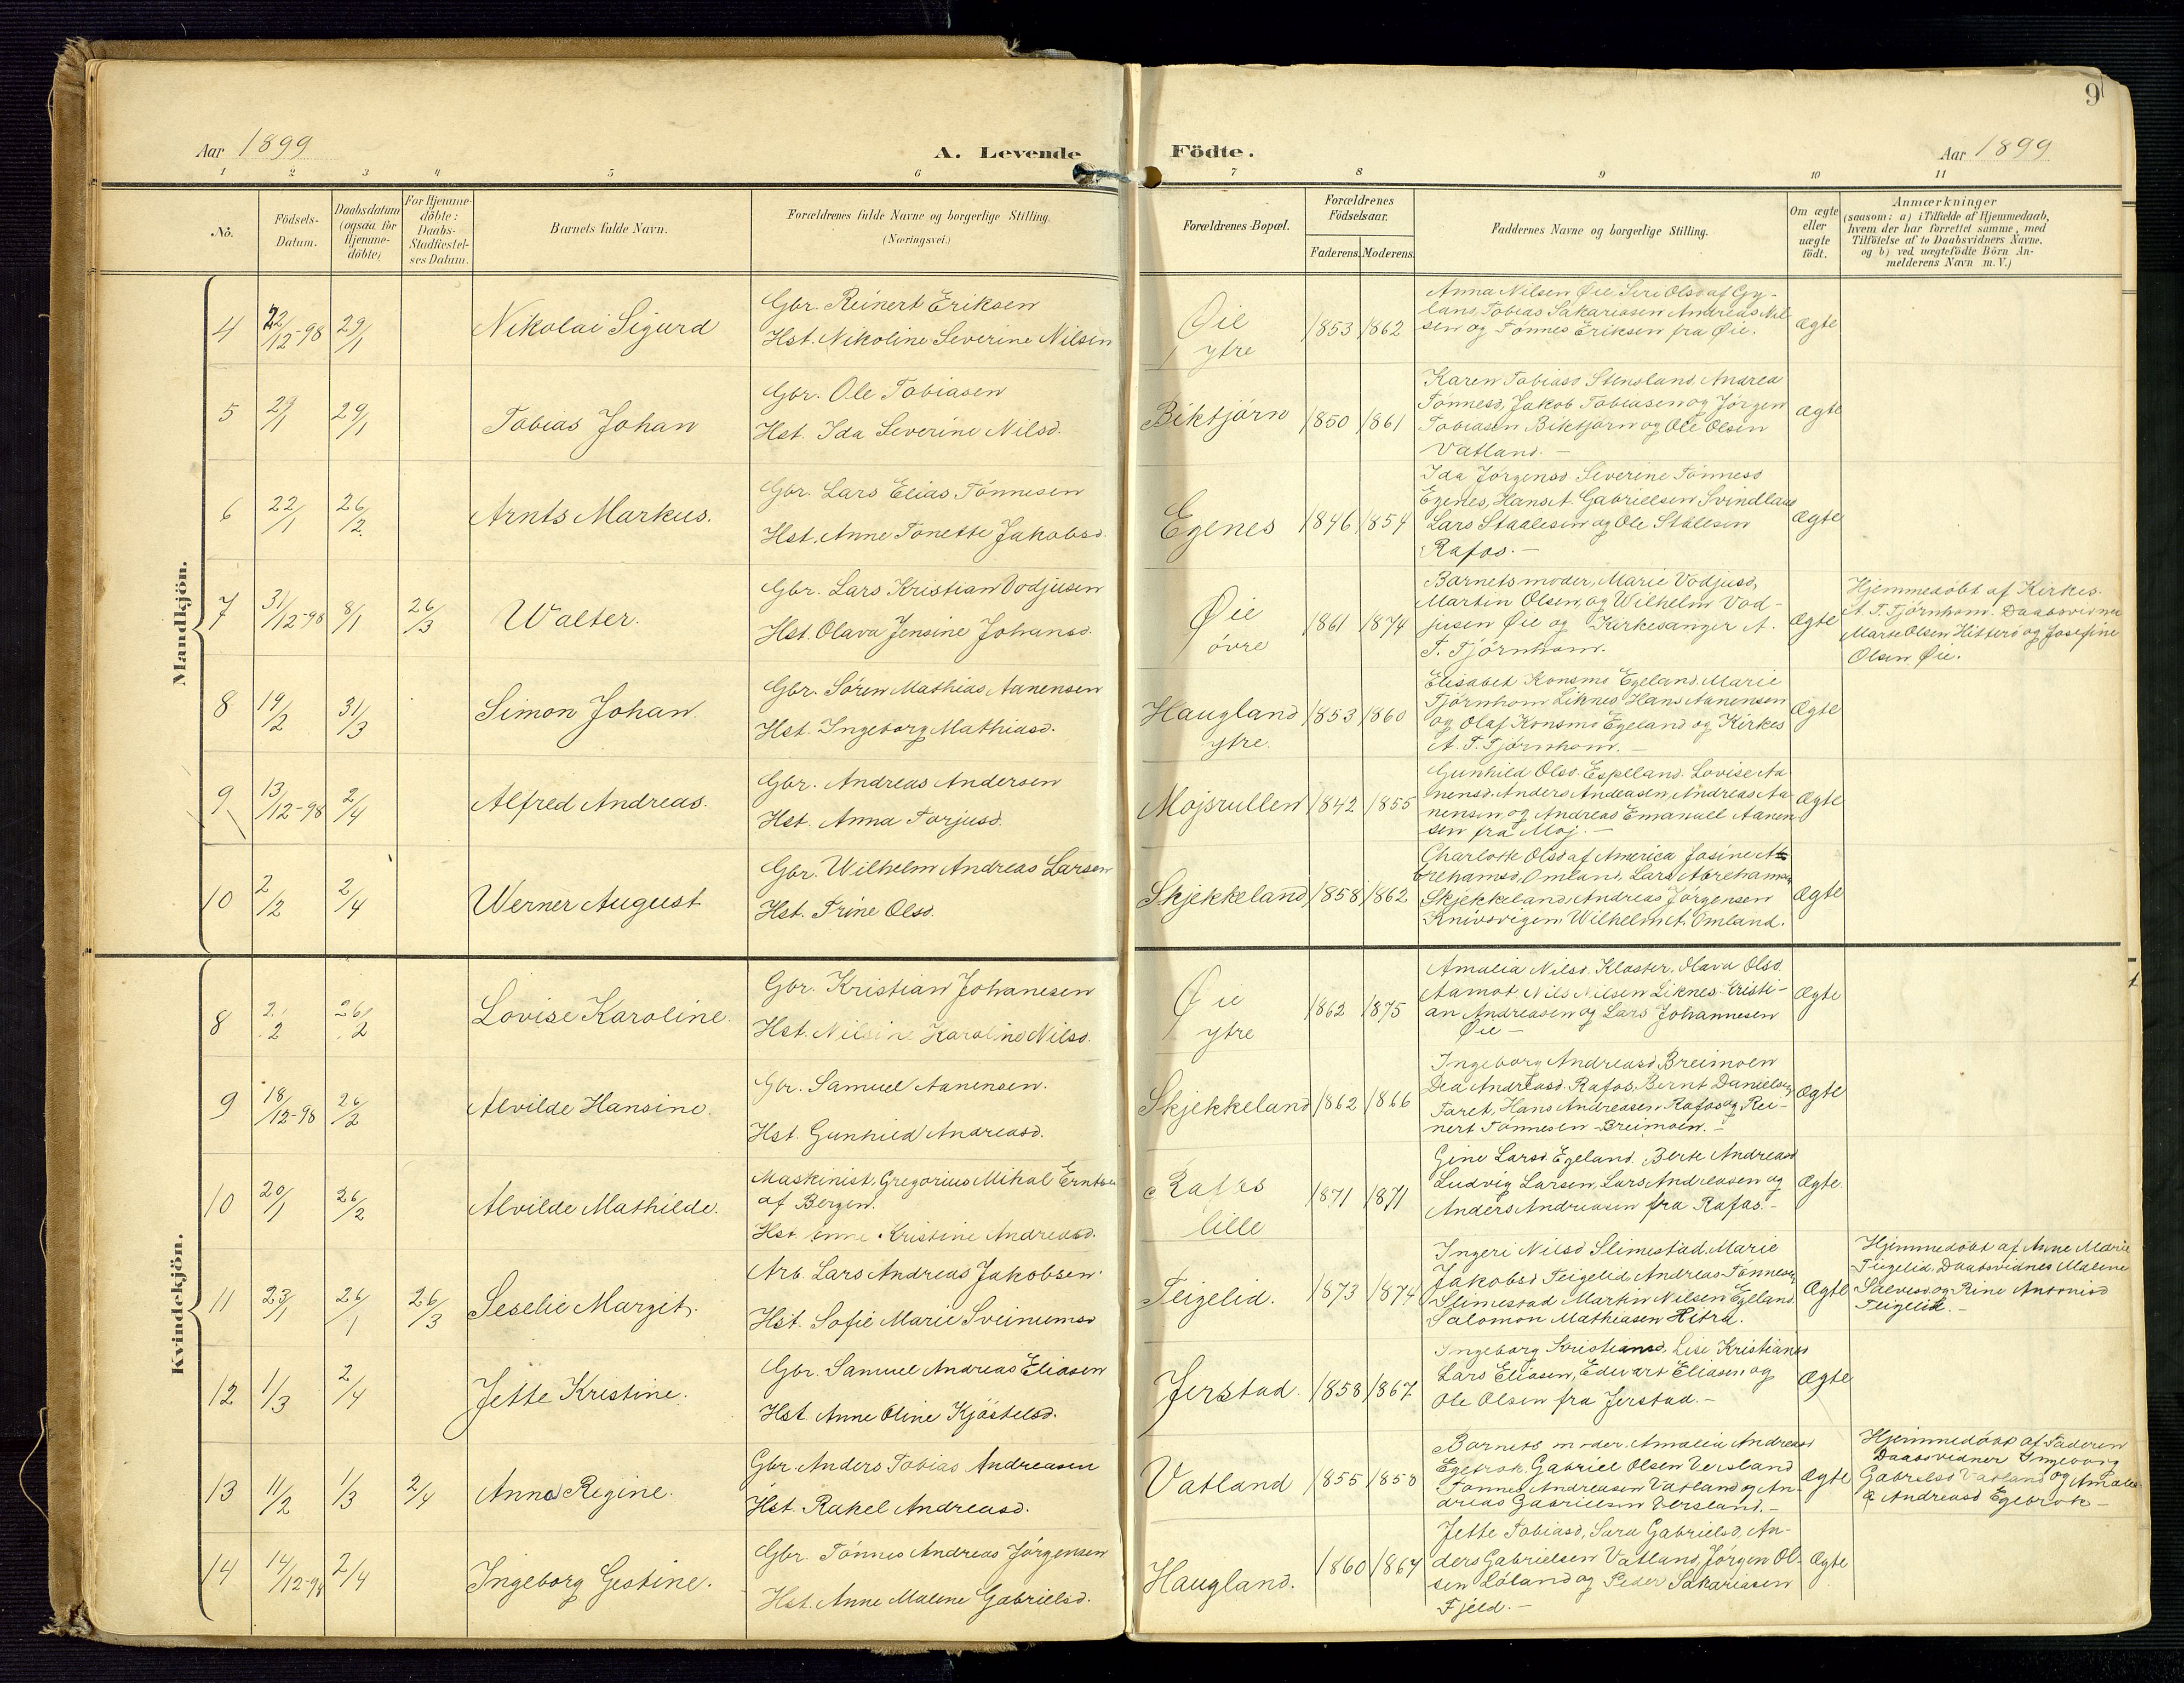 9
Aar 1899
A. Levende
Födte.
Aar 1899
1 2 3 4 5 6 7 8 9 10 11
No.
Födsels-Datum.
Daabsdatum (ogsaa for Hjemme-döbte)
For Hjemme-döbte: Daabs-Stadfæstel-ses Datum.
Barnets fulde Navn.
Forældrenes fulde Navne og borgerlige Stilling.
(Næringsvei.)
Forældrenes Bopæl.
Forældrenes Födselsaar.
Faderens. Moderens.
Faddernes Navne og borgerlige Stilling.
Om ægte eller uægte födt.
Anmærkninger
(saasom: a) i Tilfælde af Hjemmedaab,
hvem der har forrettet samme, med
Tilföielse af to Daabsvidners Navne.
og b) ved uægtefödte Börn An-
melderens Navn m. V.)
Mandkjön.
4 22/12-98 29/1 Nikolai Sigurd
Gbr. Reinert Eriksen
Hst. Nikoline Severine Nilsen
Øie ytre 1853 1862
Anna Nilsen Øie, Siri Olsd af Gy-
land, Tobias Sakariasen Andreas Nil-
sen og Tønnes Eriksen fra Øie.
ægte
5 29/1 Tobias Johan
Gbr. Ole Tobiasen
Hst. Ida Severine Nilsd.
Biktjørn 1850 1861
Karen Tobiasd Stensland, Andrea
Tønnesd, Jakob Tobiasen og Jørgen
Tobiasen Biktjørn og Ole Olsen
Vatland. –
ægte
6 22/1 26/2 Arnts Markus.
Gbr. Lars Elias Tønnesen
Hst. Anne Tonette Jakobsd.
Egenes 1846 1854
Ida Jørgensd. Severine Tønnesd
Egenes, Hans A. Gabrielsen Svindland
Lars Staalesen og Ole Stålesen
Rafos. –
Ægte
7 31/12-98 8/1 26/3 Walter.
Gbr. Lars Kristian Vodjusen
Hst. Olava Jensine Johansd.
Øie øvre 1861 1874
Barnets moder, Marie Vodjusd,
Martin Olsen, og Wilhelm Vod-
jusen Øie og Kirkesanger A.
T. Tjørnhom.
Ægte
Hjemmedøbt af Kirkes.
A. T. Tjørnhom. Daabsvidner
Marie Olsen Hitterø og Josefine
Olsen Øie.
8 19/2 31/3 Simon Johan
Gbr. Søren Mathias Aanensen
Hst. Ingeborg Mathiasd.
Haugland ytre. 1853 1860
Elisabet Konsmo Egeland. Marie
Tjørnhom Liknes, Hans Aanensen
og Olaf Konsmo Egeland og Kirkes
A. T. Tjørnhom. –
Ægte
9 13/12-98 2/4 Alfred Andreas.
Gbr. Andreas Andersen
Hst. Anna Torjusd.
Mojsrullen 1842 1855
Gunhild Olsd. Espeland. Lovise Aa-
nensd. Anders Andeasen, Andreas Aa-
nensen og Andreas Emanuell Aanen-
sen fra Moj. –
Ægte
10 2/2 2/4 Werner August
Gbr. Wilhelm Andreas Larsen
Hst. Trine Olsd.
Skjekkeland 1858 1862
Charlotte Olsd af America Josine A
brehamsd, Omland, Lars Abrehamsen
Skjekkeland, Andreas Jørgensen
Knivsvigen Wilhelm A. Omland.
Ægte
Kvindekjön.
8 2/2 26/2 Lovise Karoline.
Gbr. Kristian Johanesen
Hst. Nilsine Karoline Nilsd.
Øie ytre 1862 1875
Amalia Nilsd. Kloster. Olava Olsd.
Aamot, Nils Nilsen Liknes. Kristi-
an Andreasen og Lars Johannesen
Øie –
Ægte
9 18/12-98 26/2 Alvilde Hansine.
Gbr. Samuel Aanensen.
Hst. Gunhild Andreasd.
Skjekkeland 1862 1866
Ingeborg Andreasd, Breimoen
Dea Andreasd. Rafos, Bernt Danielsen
Faret, Hans Andreasen Rafos og Rei-
nert Tønnesen Breimoen. –
Ægte
10 20/1 26/2 Alvilde Mathilde.
Maskinist, Gregorius Mikal Erntsen
af Bergen.
Hst. Anne Kristine Andreasd.
Rafos lille 1871 1871
Gine Larsd Egeland. Berte Andreasd
Ludvig Larsen, Lars Andreasen og
Anders Andreasen fra Rafos. –
Ægte
11 23/1 26/1 26/3 Seselie Margit.
Arb. Lars Andreas Jakobsen.
Hst. Sofie Marie Sveinumsd
Teigelid. 1873 1874
Ingeri Nilsd Slimestad. Marie
Jakobsd Teigelid, Andreas Tønnesen
Slimestad Martin Nilsen Egeland
Salomon Mathiasen Hitra.
Ægte
Hjemmedøbt af Anne Marie
Teigelid, Daabsvidnes Malene
Salvesd. og Rine Antonisd
Teigelid. –
12 1/3 2/4 Jette Kristine.
Gbr. Samuel Andreas Eliasen
Hst. Anne Oline Kjøstelsd.
Jerstad. 1858 1867
Ingeborg Kristiansd, Lise Kristiansd
Lars Eliasen, Edwart Eliasen og
Ole Olsen fra Jerstad. –
Ægte
13 11/2 1/3 2/4 Anna Regine.
Gbr. Anders Tobias Andreasen
Hst. Rakel Andreasd.
Vatland 1855 1858
Barnets moder. Amalia Andreasd
Egebrok. Gabriel Olsen Versland
Tønnes Andreasen Vatland og An-
dreas Gabrielsen Versland. –
Ægte
Hjemmedøbt af Faderen
Daabsvidner Ingeborg
Gabrielsd Vatland og Amalia
Andreasd Egebrok –
14 14/12-98 2/4 Ingeborg Gestine.
Gbr. Tønnes Andreas Jørgensen
Hst. Anne Malene Gabrielsd.
Haugland. 1860 1864
Jette Tobiasd, Sara Gabrielsd, An-
ders Gabrielsen Vatland, Jørgen Ol-
sen Løland og Peder Sakariasen
Fjeld. –
Ægte